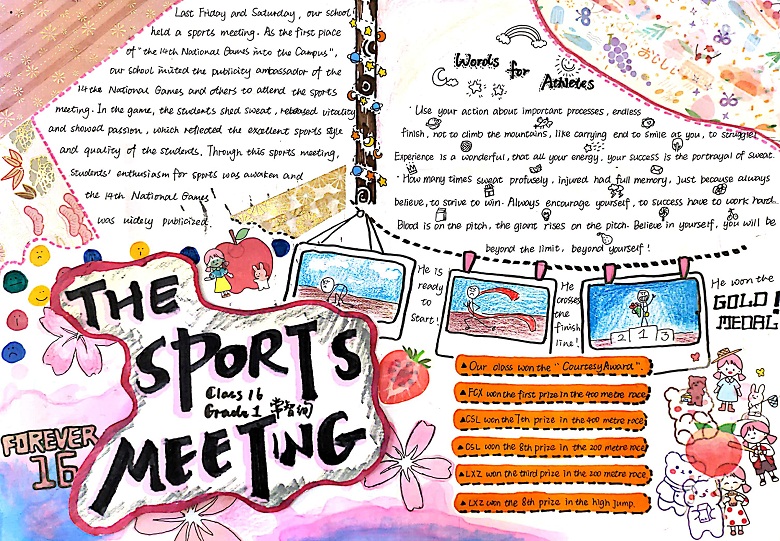 Last Friday and Saturday, our school
held a sports meeting. As the first place
of "the 14th National Games into the Campus",
our school invited the publicity ambassador of the
14the National Games and others to attend the sports
meeting. In the game, the students shed sweat, released vitality
and showed passion, which reflected the excellent sports style
and quality of the students. Through this sports meeting,
students' enthusiasm for sports was awaken and
the 14th National Games
was widely publicized.
Words for Athletes
Use your action about important processes, endless
finish, not to climb the mountains, like carrying end to smile at you, to struggle!
Experience is a wonderful, that all your energy, your success is the portrayal of sweat.
How many times sweat profusely, injured had full memory, Just because always
believe, to strive to win. Always encourage yourself, to success have to work hard.
Blood is on the pitch, the giant rises on the pitch. Believe in yourself, you will be
beyond the limit, beyond yourself!
おいしい
He is
ready
to
start!
He
crosses
the
finish
line!
2 1 3
He won the
GOLD!
MEDAL
THE
SPORTS
MEETING
Class 16
Grade 1
FOREVER
16
Our class won the "Courtesy Award".
FCX won the first prize in the 400 metre race
CSL won the 7en prize in the 400 metre race
CSL won the 8th prize in the 200 metre race
LXZ won the third prize in the 200 metre race
LXZ won the 8th prize in the high jump.